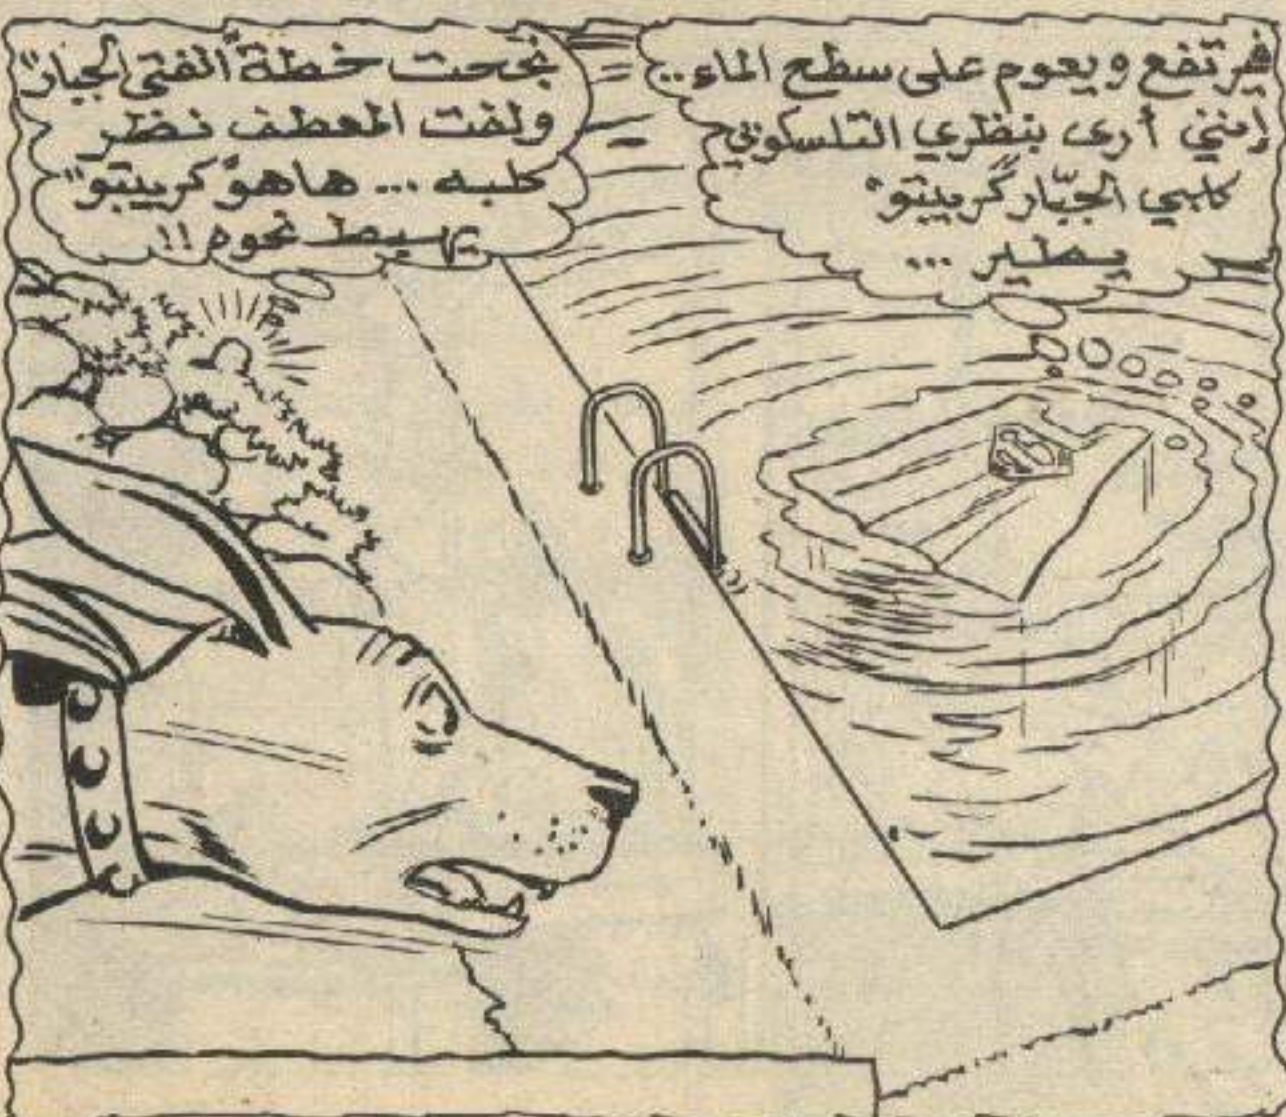 فيرتفع ويعوم على سطح الماء..
إنني أرى بنظري التلسكوبي
كلبي الجبّار "كريبتو"
يطير ...
نجحت خطة "الفتى الجبار"
ولفت المعطف نظر
كلبه ... هاهو "كريبتو"
يهبط نحوه !!